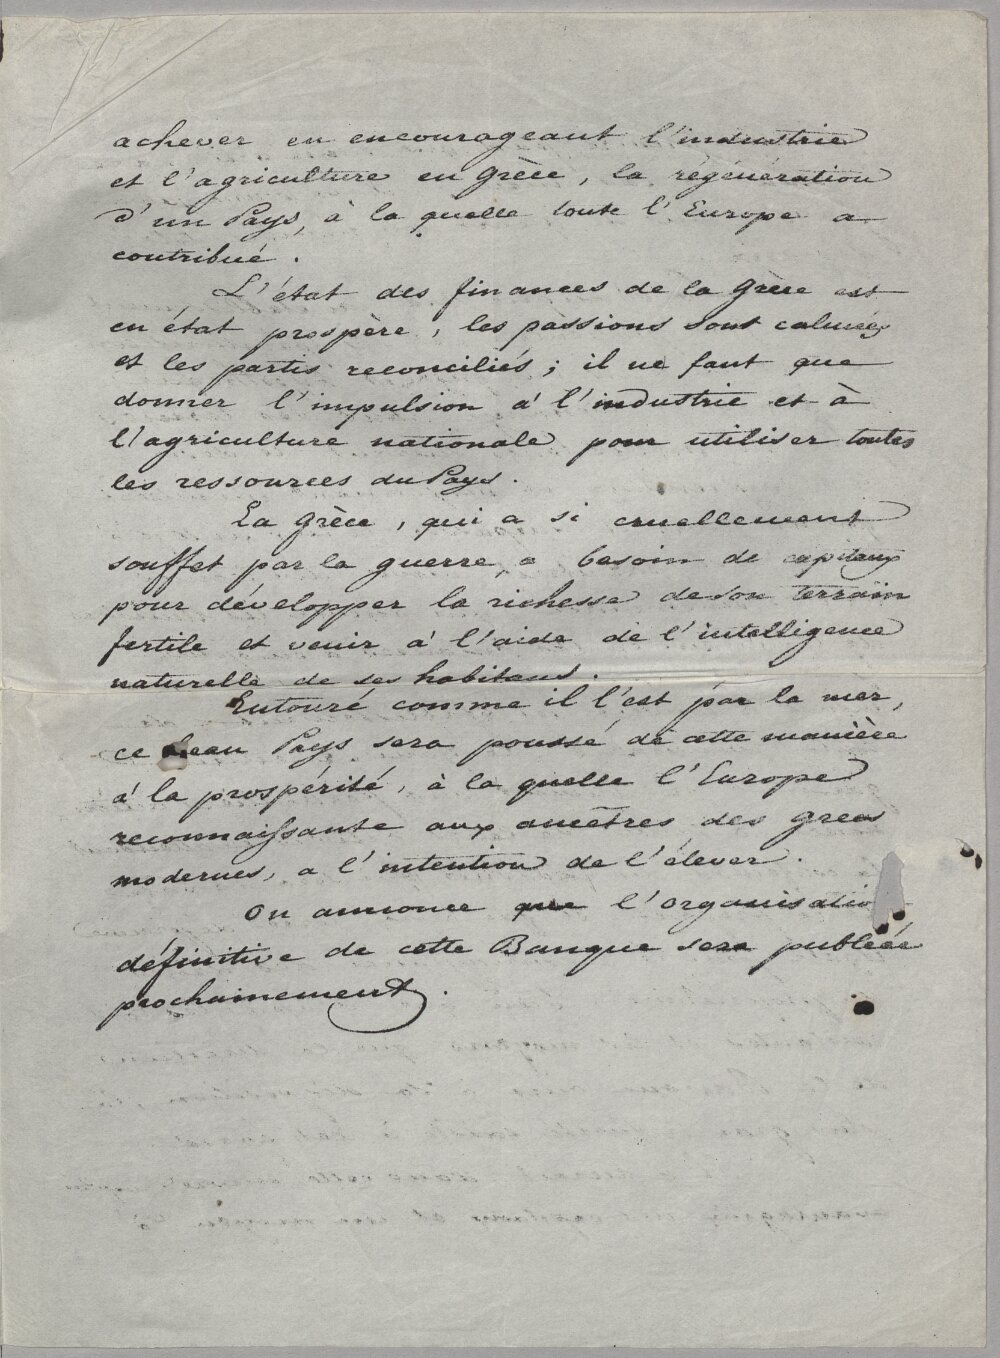 achever en encourageant l'industrie
et l'agriculture en Grèce, la régénération
d'un Pays, à la quelle toute l'Europe a
contribué.
L'état des finances de la Grèce est
en état prospère, les passions sont calmées
et les partis reconciliés; il ne faut que
donner l'impulsion à l'industrie et à
l'agriculture nationale pour utiliser toutes
les ressources du Pays.
La Grèce, qui a si cruellement
souffet par la guerre, a besoin de capitaux
pour développer la richesse de son terrain
fertile et venir à l'aide de l'intelligence
naturelle de ses habitans.
Entouré comme il l'est par la mer,
ce beau Pays sera poussé de cette manière
à la prospérité, à la quelle l'Europe
reconnaissante aux ancêtres des grecs
modernes, a l'intention de l'élever.
On annonce que l'organisation
définitive de cette Banque sera publiée
prochainement.